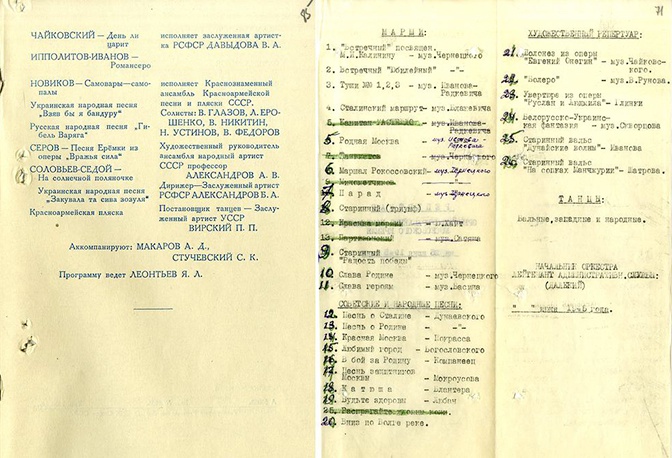 85
ЧАЙКОВСКИЙ — День ли царит
исполняет заслуженная артистка РСФСР ДАВЫДОВА В. А.
ИППОЛИТОВ-ИВАНОВ — Романсеро
НОВИКОВ — Самовары-самопалы
Украинская народная песня „Взяв бы я бандуру"
Русская народная песня „Гибель Варяга"
СЕРОВ — Песня Ерёмки из оперы „Вражья сила"
СОЛОВЬЕВ-СЕДОЙ — На солнечной поляночке
Украинская народная песня „Закувала та сива зозуля"
Красноармейская пляска
исполняет Краснознаменный
ансамбль Красноармейской
песни и пляски СССР.
Солисты: В. ГЛАЗОВ, Л. ЕРО-
ШЕНКО, В. НИКИТИН,
Н. УСТИНОВ, В. ФЕДОРОВ
Художественный руководитель
ансамбля народный артист
СССР профессор
АЛЕКСАНДРОВ А. В.
Дирижер—Заслуженный артист
РСФСР АЛЕКСАНДРОВ Б. А.
Постановщик танцев — Заслу-
женный артист УССР
ВИРСКИЙ П. П.
Аккомпанируют: МАКАРОВ А. Д.,
СТУЧЕВСКИЙ С. К.
Программу ведет ЛЕОНТЬЕВ Я. Л.
71
МАРШИ:
1. "Встречный" посвящен.
М.И.Калинину - муз.Чернецкого
2. Встречный "Юбилейный" -"-
3. Туши №№ 1,2,3 - муз. Иванова-
Радкевича
4. Сталинский маршрут- муз.
5. Капитан - муз.Иванова-
Радкевича
5 Родная Москва - муз.
7. Танкистов - муз. Чернецкого
6 Маршал Рокоссовский - муз. Чернецкого
7 Парад - муз. Чернецкого
8 Старинный (триумф)
12. Красная - муз.
13.
9 Старинный
"Радость победы"
10 Слава Родине - муз.Чернецкого
11 Слава героям - муз.
СОВЕТСКИЕ И НАРОДНЫЕ ПЕСНИ:
12. Песнь о Сталине - Дунаевского
13. Песнь о Родине - -"-
14. Красная Москва - Покрасса
15. Любимый город - Богословского
16. В бой за Родину - Компанеец
17. Песнь защитников
Москвы - Мокроусова
18. Катюша - Блантера
19. Будьте здоровы - Любан
25. Распрягайте хлопцы кони.
20. Вниз по Волге реке.
ХУДОЖЕСТВЕННЫЙ РЕПЕРТУАР:
21. Полонез из оперы
"Евгений Онегин" - муз.Чайковс-
кого.
22. "Болеро" - муз.В.Рунова.
23. Увертюра из оперы
"Руслан и Людмила" - Глинки
24. Белорусско-Украинс-
кая фантазия - муз.
25. Старинный вальс
"Дунайские волны"- Иванова
26. Старинный вальс
"На сопках Манчжурии"-
ТАНЦЫ:
Бальные,западные и народные.
НАЧАЛЬНИК ОРКЕСТРА
ЛЕЙТЕНАНТ АДМИНИСТРАТИВН. СЛУЖБЫ:
" " июня 1945 года.